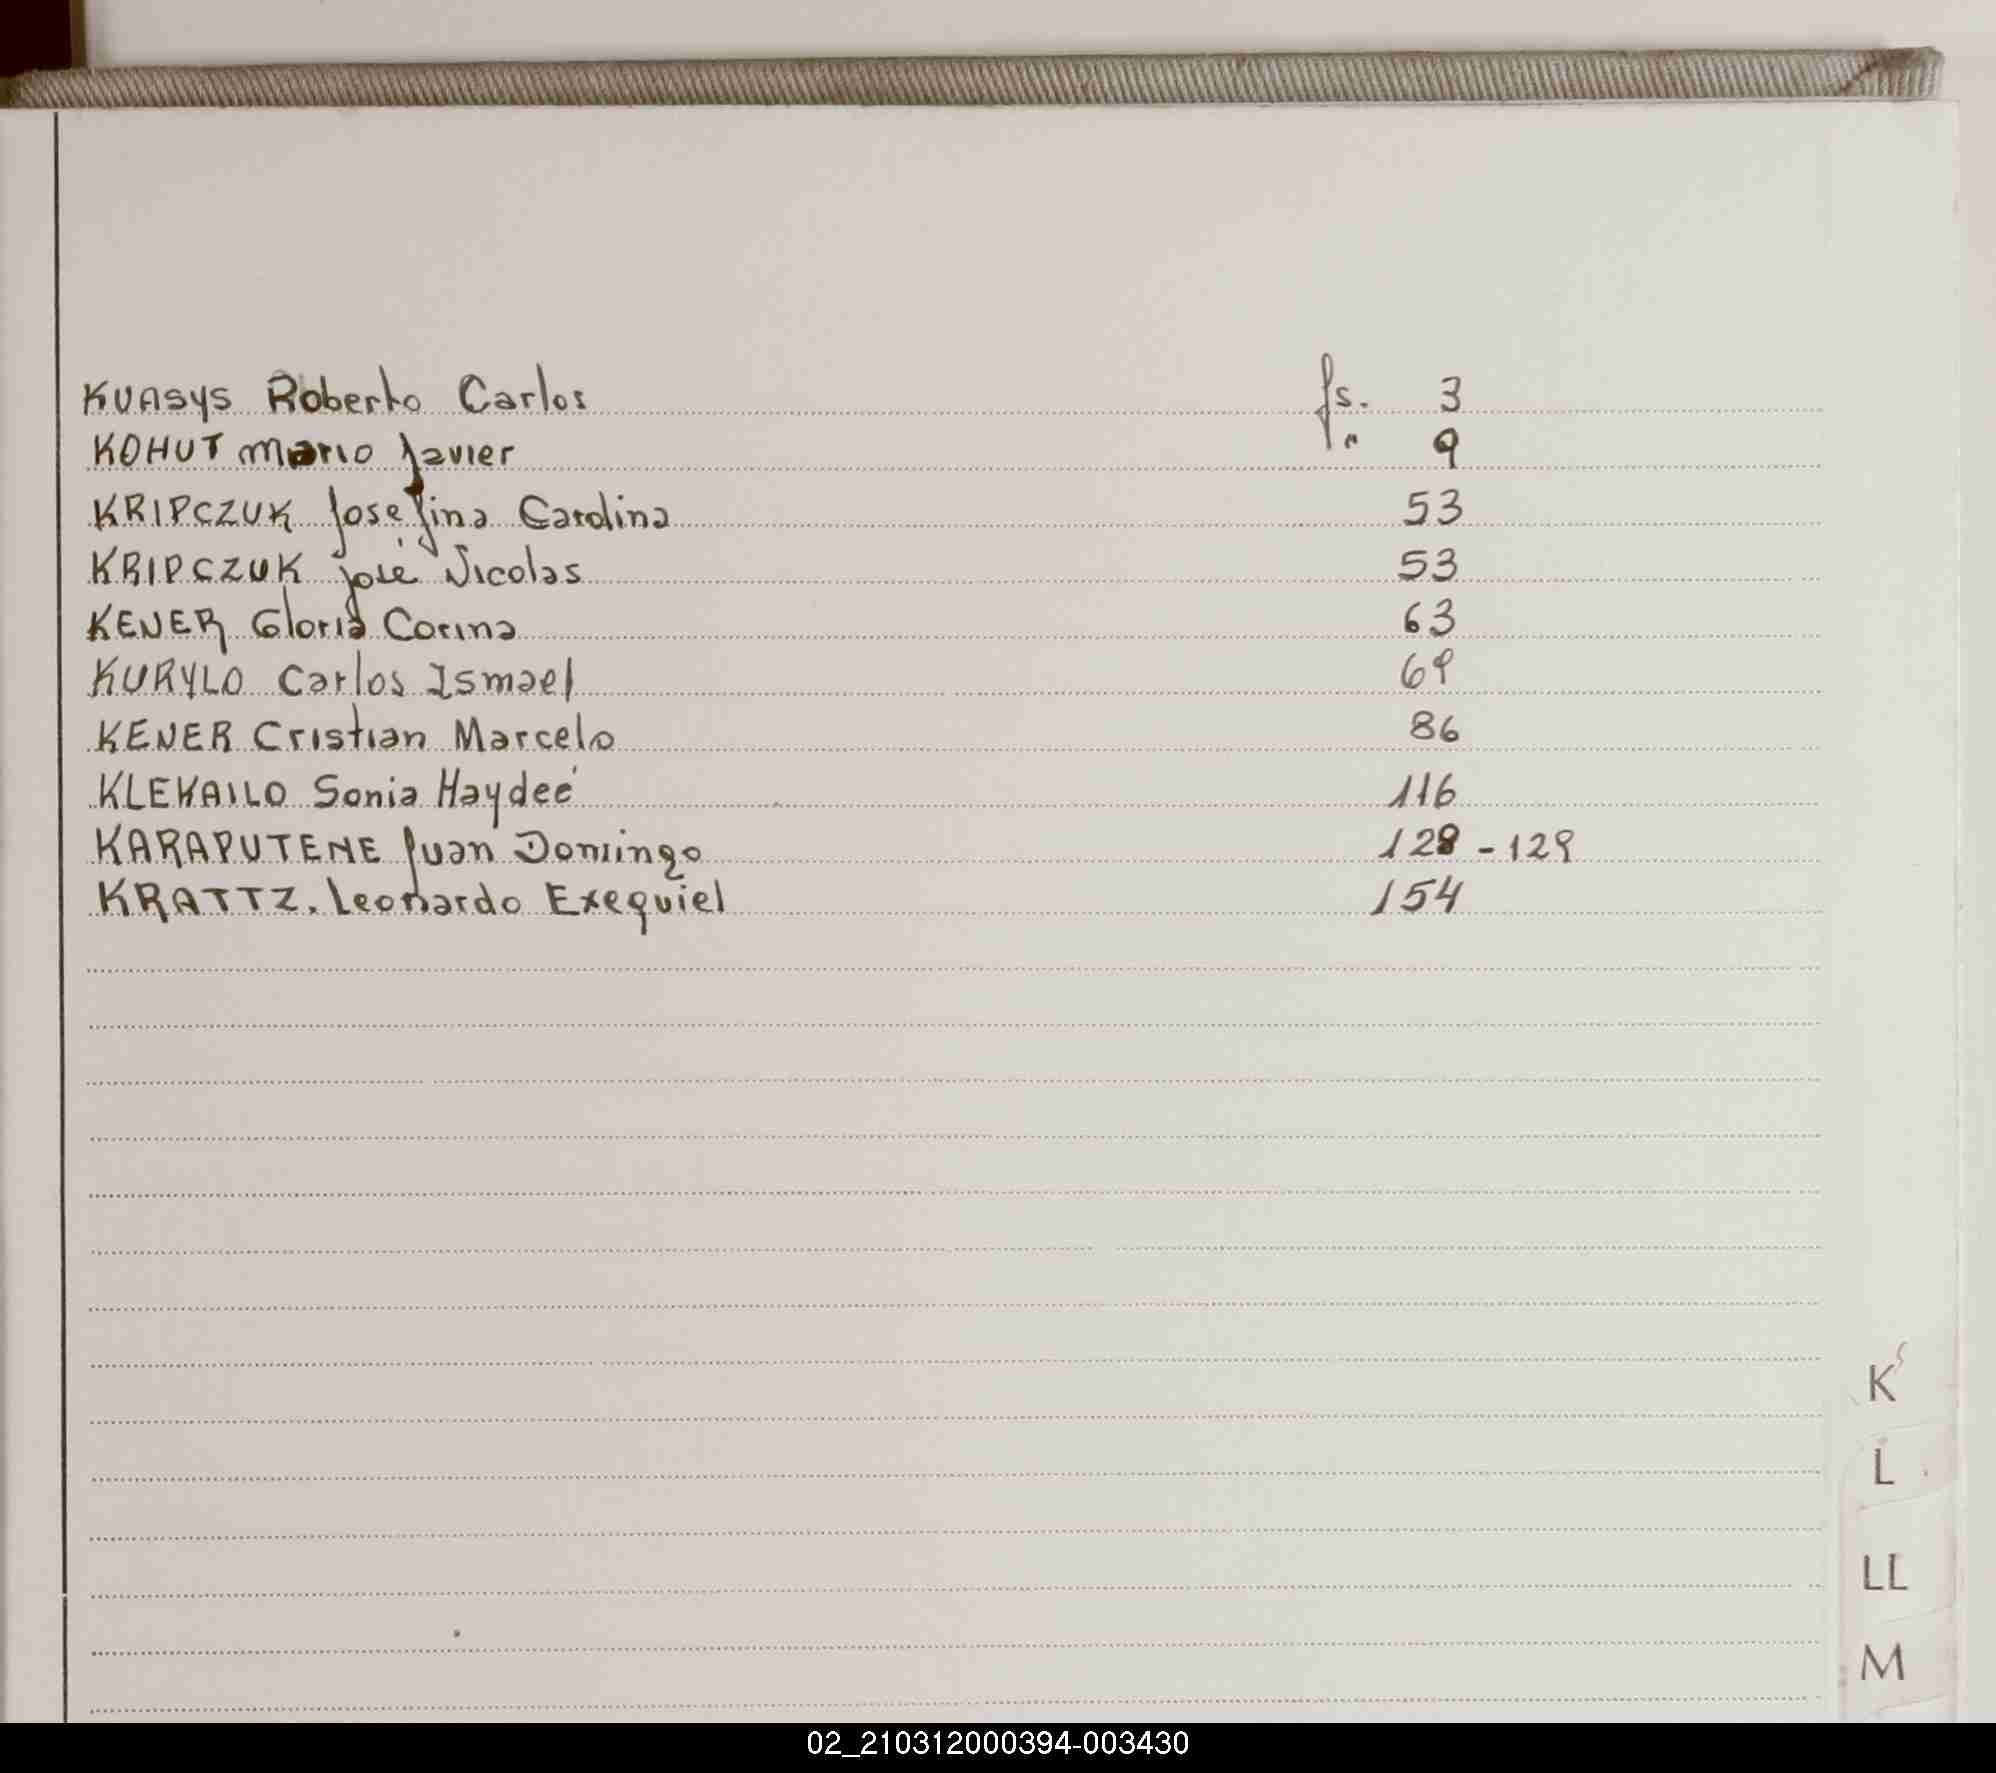 KUASYS Roberto Carlos fs. 3
KOHUT Mario Javier " 9
KRIPCZUK Josefina Carolina 53
KRIPCZUK José Nicolas 53
KENER Gloria Corina 63
KURYLO Carlos Ismael 69
KENER Cristian Marcelo 86
KLEKAILO Sonia Haydeé 116
KARAPUTENE Juan Domingo 128 - 129
KRATTZ. Leonardo Exequiel 154
K
L
LL
M
02_210312000394-003430